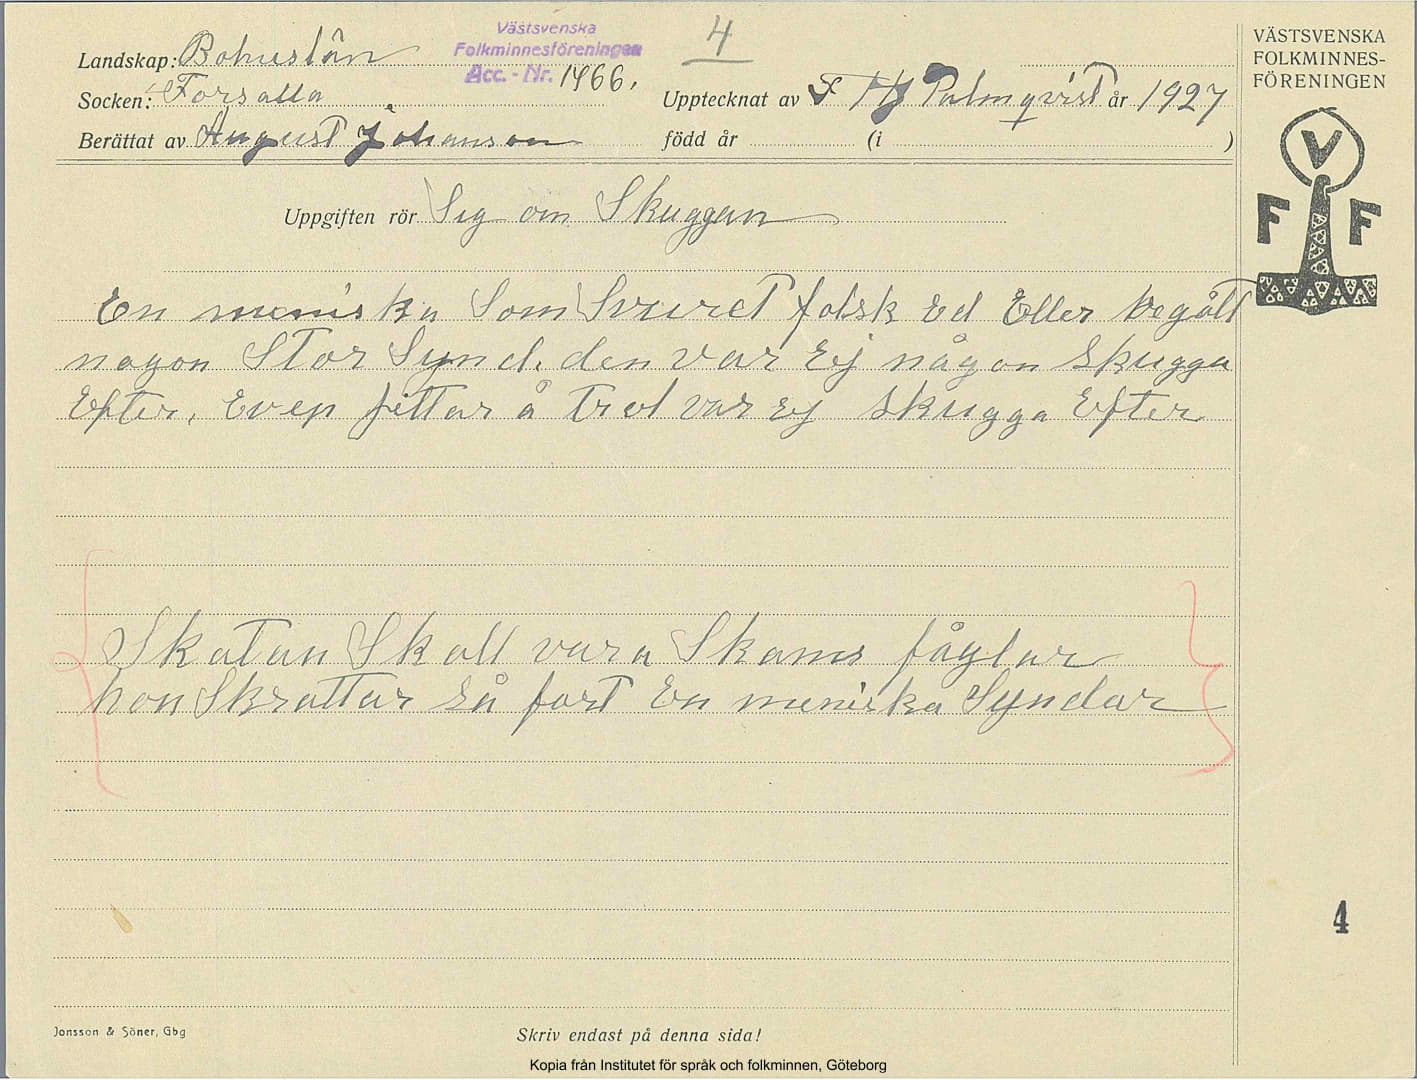 Västsvenska
Folkminnesföreningen
Acc. - Nr. 1466.
4
Landskap: Bohuslän
Socken: Forsalla
Berättat av August Johanson
Upptecknat av F Hj Palmqvist år 1927
född år (i )
VÄSTSVENSKA
FOLKMINNES-
FÖRENINGEN
V
F F
Uppgiften rör Sig om Skuggan
En meniska Som Svuret falsk Ed Eller begått
nagon Stor Synd. den var Ej någon Skugga
Efter, Even fittar å trol var Ej Skugga Efter
Skatan Skall vara Skams fåglar
hon Skrattar så fort En meniska Syndar
4
Jonsson & Söner, Gbg
Skriv endast på denna sida!
Kopia från Institutet för språk och folkminnen, Göteborg